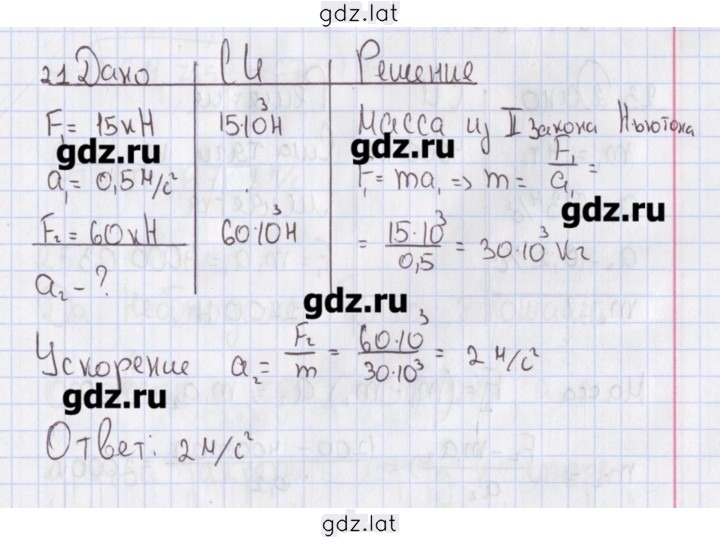 gdz.lat
21 Дано СИ Решение
F₁ = 15 кН 15·10³ Н Масса из II закона Ньютона
gdz.ru gdz.ru
a₁ = 0,5 м/с² F₁ = ma₁ => m = F₁/a₁ =
gdz.ru
F₂ = 60 кН 60·10³ Н = 15·10³/0,5 = 30·10³ кг
a₂ - ?
gdz.ru
Ускорение a₂ = F₂/m = 60·10³/30·10³ = 2 м/с²
gdz.ru
Ответ: 2 м/с²
gdz.lat